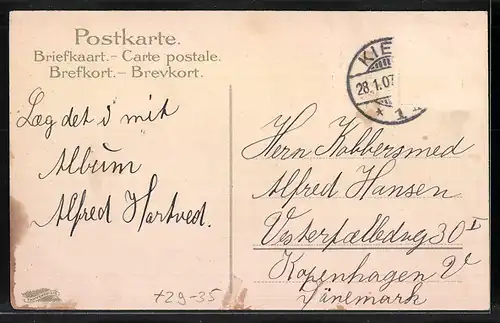 Postkarte.
Briefkaart.– Carte postale.
Brefkort.– Brevkort.
KIE
28.1.07
* 1
Læg det i mit
Album
Alfred Hartved.
Herrn Kobbersmed
Alfred Hansen
30 I
Kopenhagen V
Dänemark
+29-35